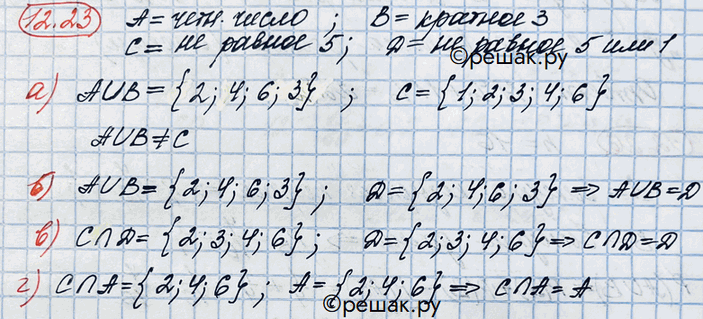 12.23 A = четн. число ; B = кратное 3
C = не равное 5; D = не равное 5 или 1
©решак.ру
а) A∪B = {2; 4; 6; 3} ; C = {1; 2; 3; 4; 6}
A∪B ≠ C
б) A∪B = {2; 4; 6; 3} ; D = {2; 4; 6; 3} => A∪B = D
в) C∩D = {2; 3; 4; 6} ; D = {2; 3; 4; 6} => C∩D = D
г) C∩A = {2; 4; 6} ; A = {2; 4; 6} => C∩A = A
©решак.ру